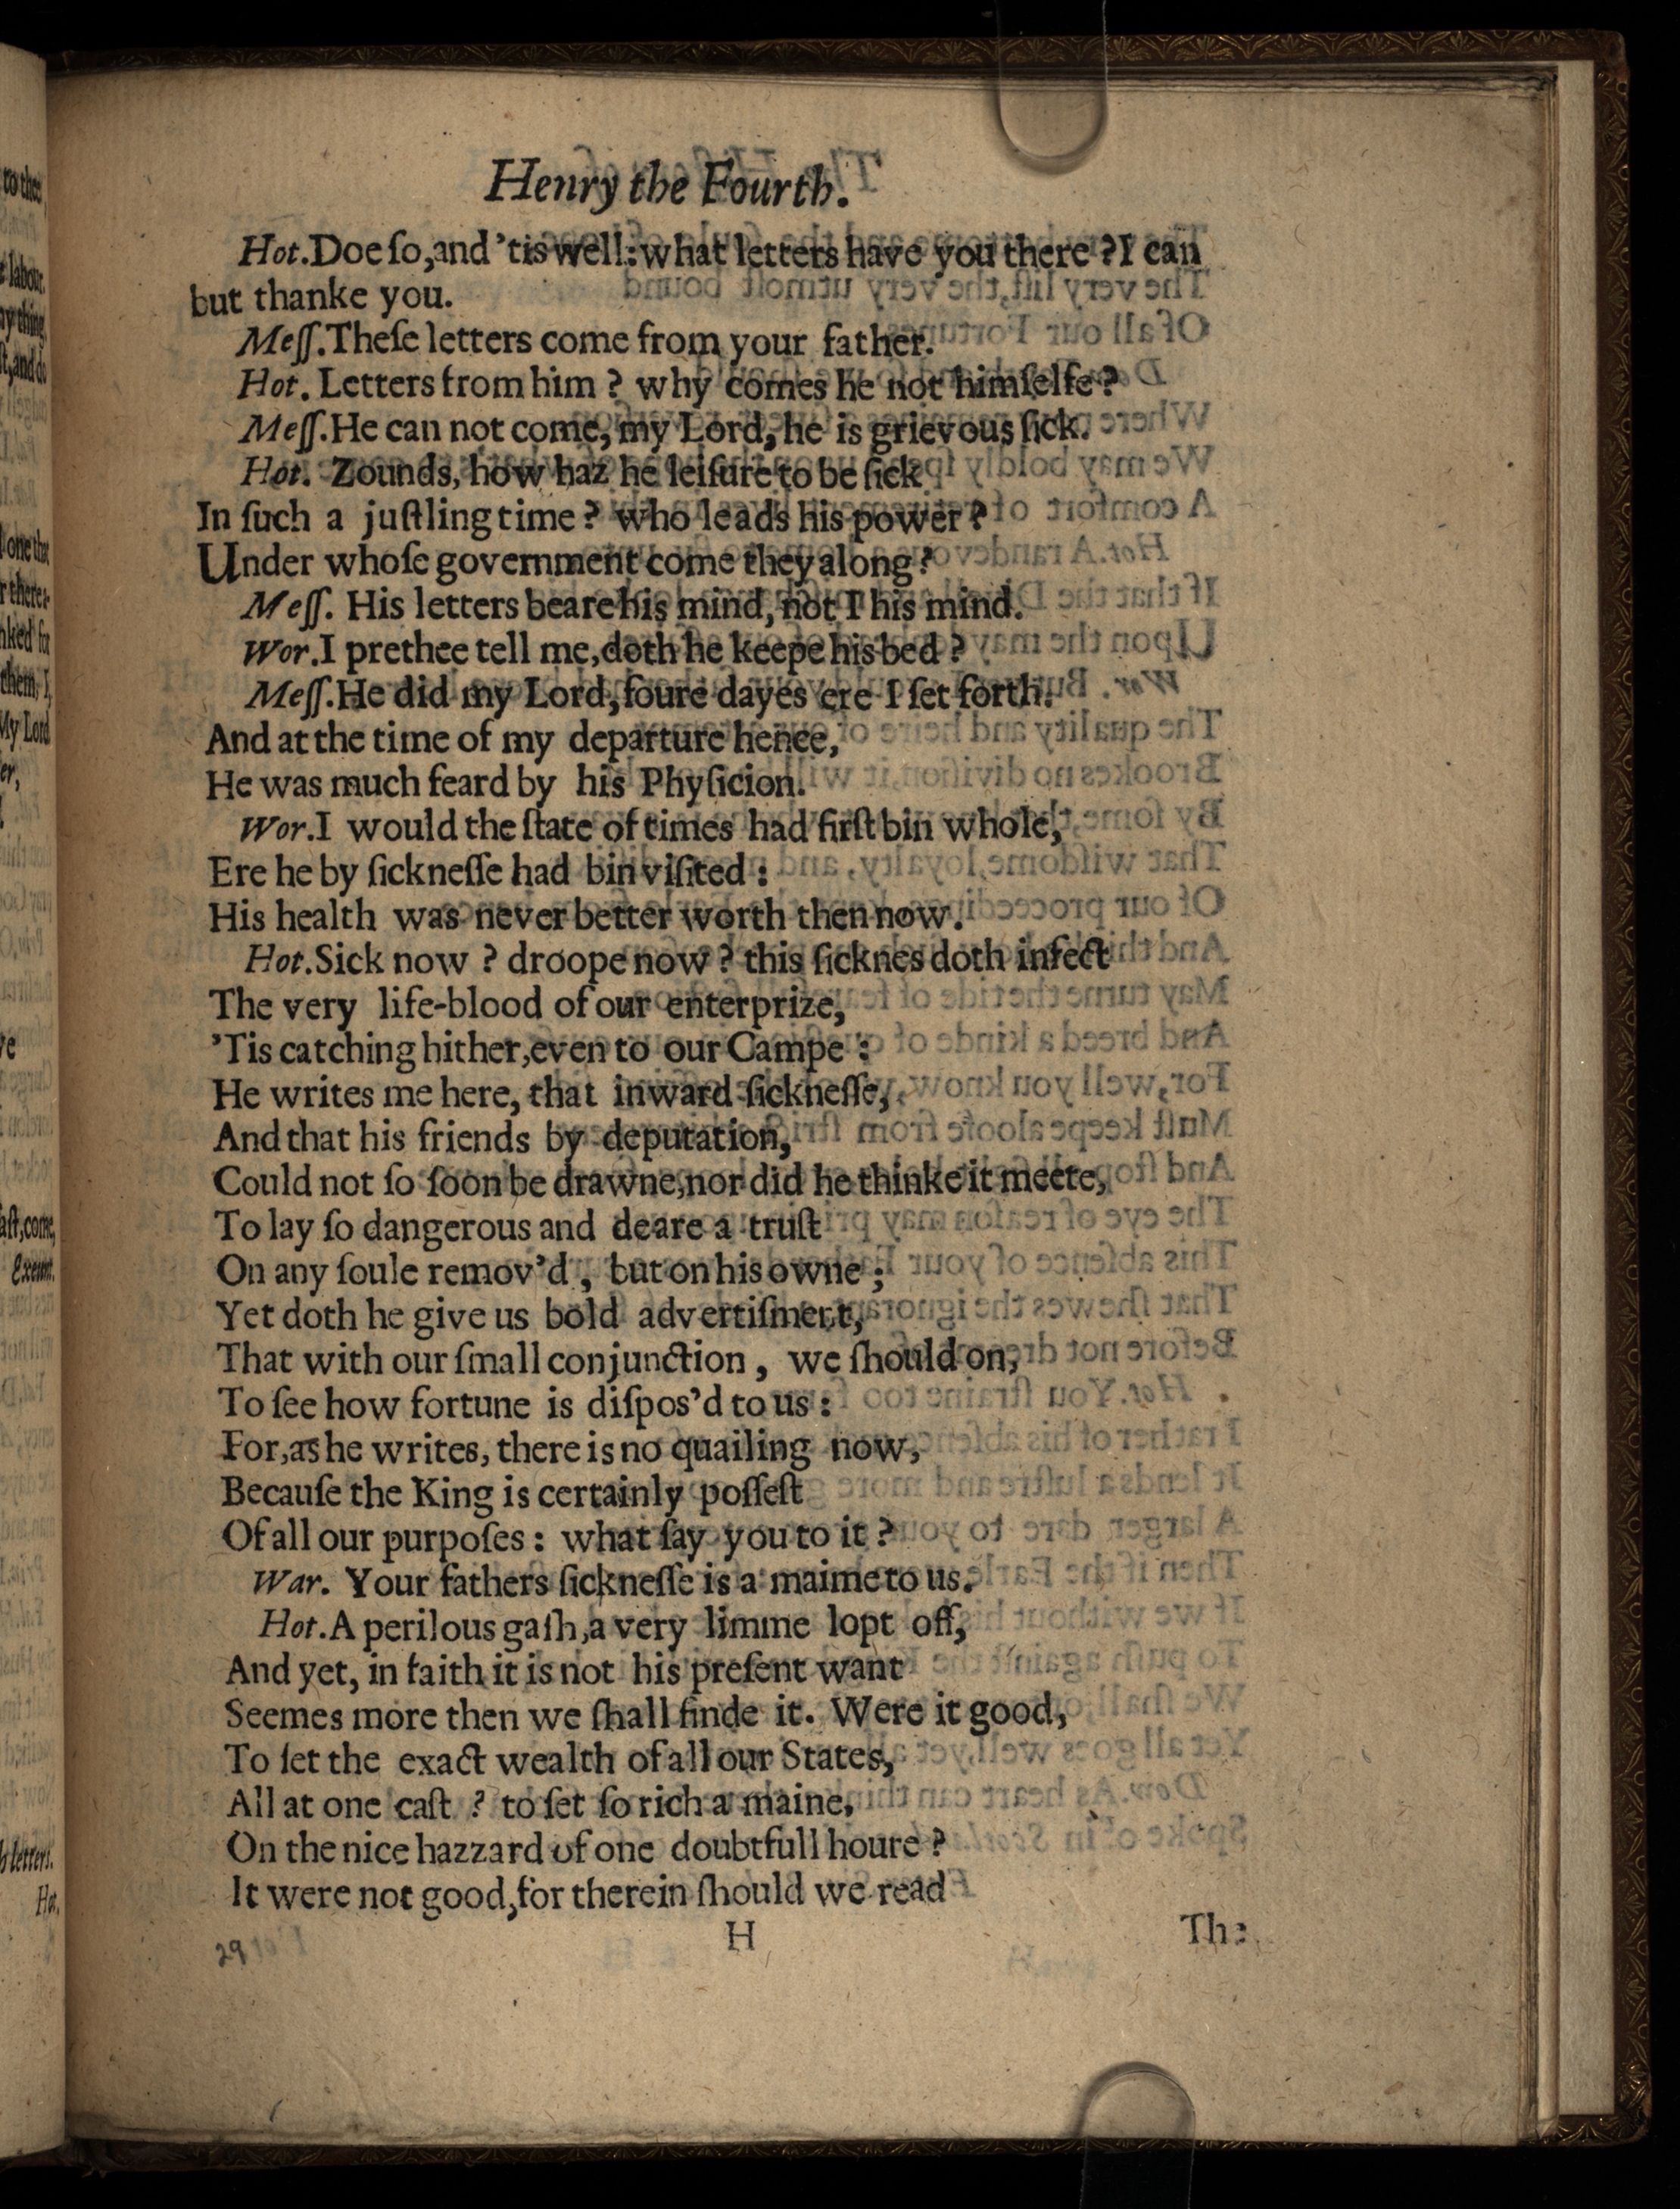 Henry the Fourth.
Hot.Doe ſo,and 'tis well: what letters have you there ? I can
but thanke you.
Meſſ.Theſe letters come from your father.
Hot. Letters from him ? why comes he not himſelfe ?
Meſſ.He can not come, my Lord, he is grievous ſick.
Hot. Zounds, how haz he leiſure to be ſick
In ſuch a juſtling time ? who leads his power ?
Under whoſe government come they along ?
Meſſ. His letters beare his mind, not I his mind.
Wor.I prethee tell me,doth he keepe his bed ?
Meſſ.He did my Lord, foure dayes ere I ſet forth.
And at the time of my departure hence,
He was much feard by his Phyſicion.
Wor.I would the ſtate of times had firſt bin whole,
Ere he by ſickneſſe had bin viſited :
His health was never better worth then now.
Hot.Sick now ? droope now ? this ſicknes doth infect
The very life-blood of our enterprize,
'Tis catching hither,even to our Campe :
He writes me here, that inward ſickneſſe,
And that his friends by deputation,
Could not ſo ſoon be drawne,nor did he thinke it meete,
To lay ſo dangerous and deare a truſt
On any ſoule remov'd , but on his owne ;
Yet doth he give us bold advertiſment,
That with our ſmall conjunction , we ſhould on,
To ſee how fortune is diſpos'd to us :
For,as he writes, there is no quailing now,
Becauſe the King is certainly poſſeſt
Of all our purpoſes : what ſay you to it ?
War. Your fathers ſickneſſe is a maime to us.
Hot.A perilous gaſh,a very limme lopt off,
And yet, in faith it is not his preſent want
Seemes more then we ſhall finde it. Were it good,
To ſet the exact wealth of all our States,
All at one caſt ? to ſet ſo rich a maine,
On the nice hazzard of one doubtfull houre ?
It were not good,for therein ſhould we read
H
The
29